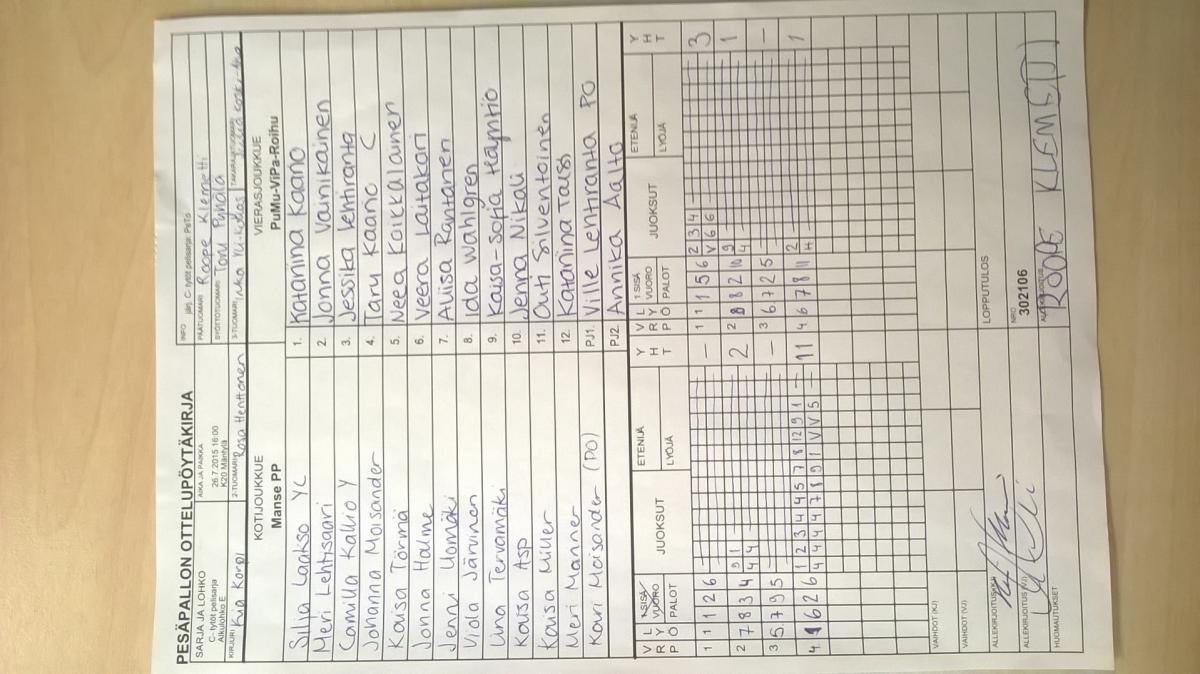 PESÄPALLON OTTELUPÖYTÄKIRJA
SARJA JA LOHKO
C- tytöt pelisarja
Alkulohko E
AIKA JA PAIKKA
26.7.2015 16:00
K20 Mäntylä
INFO järj. C- tytöt pelisarja: PeTo
PÄÄTUOMARI Roope Klemetti
SYÖTTÖTUOMARI Toni Pynölä
KIRJURI Kia Korpi
2-TUOMARI Rosa Henttonen
3-TUOMARI
KOTIJOUKKUE
Manse PP
VIERASJOUKKUE
PuMu-ViPa-Roihu
Silja Laakso YC 1. Katariina Kaario
Meri Lehtisaari 2. Jonna Vainikainen
Camilla Kallio Y 3. Jessika Lehtiranta
Johanna Moisander 4. Taru Kaario C
Kaisa Törmä 5. Neea Koikkalainen
Jonna Halme 6. Veera Laitakari
Jenni Uomäki 7. Aliisa Rantanen
Viola Järvinen 8. Ida Wahlgren
Tervamäki 9. Kaisa-Sofia Käyhtiö
Kaisa Asp 10. Jenna Nikali
Kaisa Miller 11. Outi Silventoinen
12. Katariina Talsi
Meri Manner PJ1. Ville Lehtiranta PO
Kauri Moisander (PO) PJ2. Annika Aalto
VRP LYÖ 1 SISÄ VUORO PALOT JUOKSUT ETENIJÄ LYÖJÄ YHT
VRP LYÖ 1 SISÄ VUORO PALOT JUOKSUT ETENIJÄ LYÖJÄ YHT
1 1 1 2 6 — 1 1 1 5 6 2 3 4 3
V 6 6
2 7 8 3 4 9 1 2 2 8 8 2 10 9 1
4 4 4
3 5 7 9 5 — 3 6 7 2 5 —
4 1 6 2 6 1 2 3 4 4 5 7 8 12 9 1 11 4 6 7 8 11 2 1
4 4 4 4 7 8 9 1 V V 5 4
VAIHDOT (KJ)
VAIHDOT (VJ)
LOPPUTULOS
ALLEKIRJOITUS (KJ)
ALLEKIRJOITUS (VJ)
NRO
302106
HUOMAUTUKSET